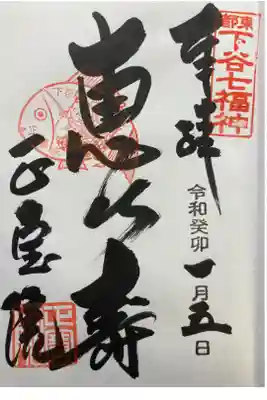 東都
下谷七福神
奉拝
令和癸卯一月五日
恵比寿
正宝院